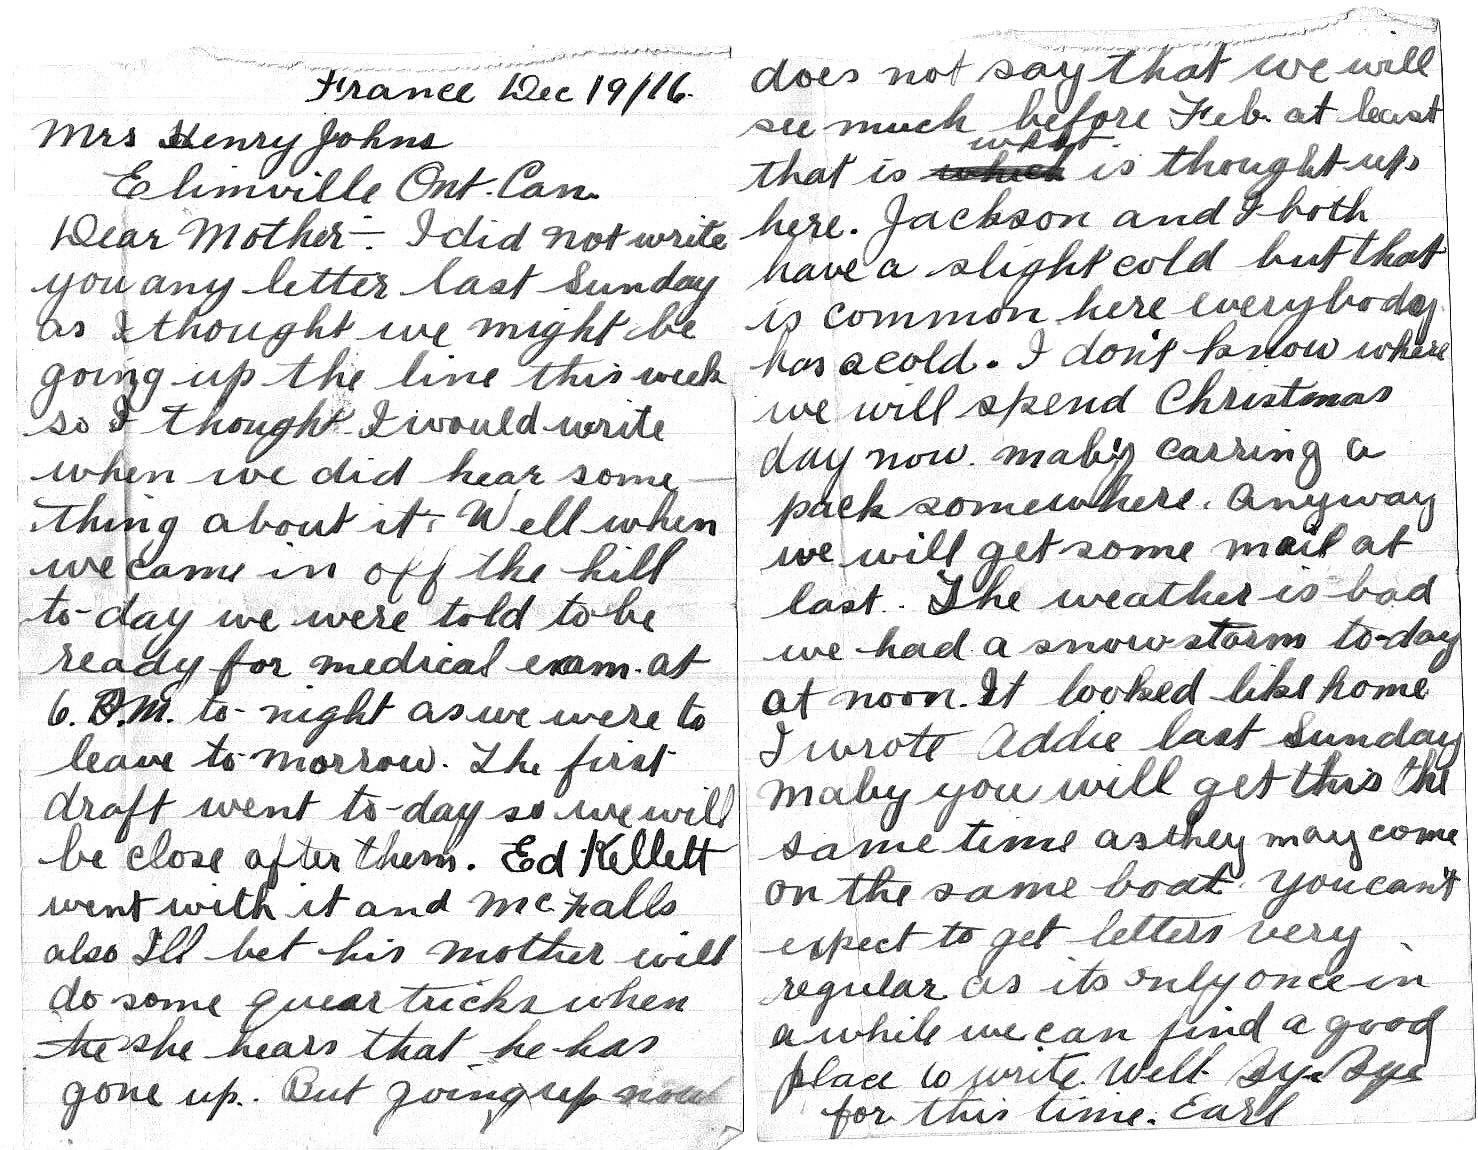 France Dec 19/16.
Mrs Henry Johns
Elimville Ont. Can.
Dear Mother:- I did not write
you any letter last Sunday
as I thought we might be
going up the line this week
so I thought I would write
when we did hear some-
thing about it. Well when
we came in off the hill
to-day we were told to be
ready for medical exam. at
6. P.M. to-night as we were to
leave to-morrow. The first
draft went to-day so we will
be close after them. Ed Kellett
went with it and McFalls
also I'll bet his mother will
do some quear tricks when
the she hears that he has
gone up. But going up now
does not say that we will
see much before Feb. at least
what
that is which is thought up
here. Jackson and I both
have a slight cold but that
is common here everybody
has a cold. I don't know where
we will spend Christmas
day now. maby carring a
pack somewhere. Anyway
we will get some mail at
last. The weather is bad
we had a snow-storm to-day
at noon. It looked like home
I wrote Addie last Sunday
maby you will get this the
same time as they may come
on the same boat. You can't
expect to get letters very
regular as its only once in
a while we can find a good
place to write. Well Bye Bye
for this time. Earl